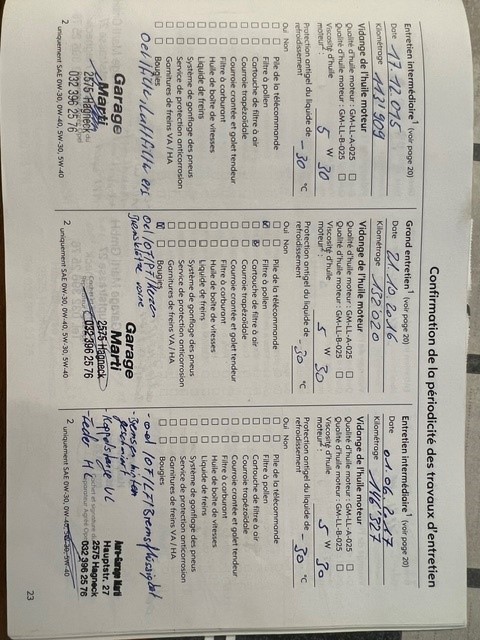 Confirmation de la périodicité des travaux d'entretien
Entretien intermédiaire¹ (voir page 20)
Date 17.12.015
Kilométrage
Vidange de l'huile moteur
Qualité d'huile moteur : GM-LL-A-025 ☐
Qualité d'huile moteur : GM-LL-B-025 ☐
Viscosité d'huile
moteur²: 5 W 30
Protection antigel du liquide de
refroidissement -30 °C
Oui Non
☐ ☐ Pile de la télécommande
☐ ☐ Filtre à pollen
☐ ☐ Cartouche de filtre à air
☐ ☐ Courroie trapézoïdale
☐ ☐ Courroie crantée et galet tendeur
☐ ☐ Filtre à carburant
☐ ☐ Huile de boîte de vitesses
☐ ☐ Liquide de freins
☐ ☐ Système de gonflage des pneus
☐ ☐ Service de protection anticorrosion
☐ ☐ Garnitures de freins VA / HA
☐ ☐ Bougies
Garage
Marti
2575 Hagneck
032 396 25 76
2 uniquement SAE 0W-30, 0W-40, 5W-30, 5W-40
Grand entretien¹ (voir page 20)
Date 21.10.2016
Kilométrage 132020
Vidange de l'huile moteur
Qualité d'huile moteur : GM-LL-A-025 ☐
Qualité d'huile moteur : GM-LL-B-025 ☐
Viscosité d'huile
moteur²: 5 W 30
Protection antigel du liquide de
refroidissement -30 °C
Oui Non
Pile de la télécommande
Filtre à pollen
Cartouche de filtre à air
Courroie trapézoïdale
Courroie crantée et galet tendeur
Filtre à carburant
Huile de boîte de vitesses
Liquide de freins
Système de gonflage des pneus
Service de protection anticorrosion
Garnitures de freins VA / HA
Bougies
Garage
Marti
2575 Hagneck
032 396 25 76
2 uniquement SAE 0W-30, 0W-40, 5W-30, 5W-40
Entretien intermédiaire¹ (voir page 20)
Date 01.06.2017
Kilométrage 146'327
Vidange de l'huile moteur
Qualité d'huile moteur : GM-LL-A-025 ☐
Qualité d'huile moteur : GM-LL-B-025 ☐
Viscosité d'huile
moteur²: 5 W 30
Protection antigel du liquide de
refroidissement -30 °C
Oui Non
☐ ☐ Pile de la télécommande
☐ ☐ Filtre à pollen
☐ ☐ Cartouche de filtre à air
☐ ☐ Courroie trapézoïdale
☐ ☐ Courroie crantée et galet tendeur
☐ ☐ Filtre à carburant
☐ ☐ Huile de boîte de vitesses
☐ ☐ Liquide de freins
☐ ☐ Système de gonflage des pneus
☐ ☐ Service de protection anticorrosion
☐ ☐ Garnitures de freins VA / HA
☐ ☐ Bougies
Auto-Garage Marti
Hauptstr. 27
2575 Hagneck
032 396 25 76
2 uniquement SAE 0W-30, 0W-40, 5W-30, 5W-40
23